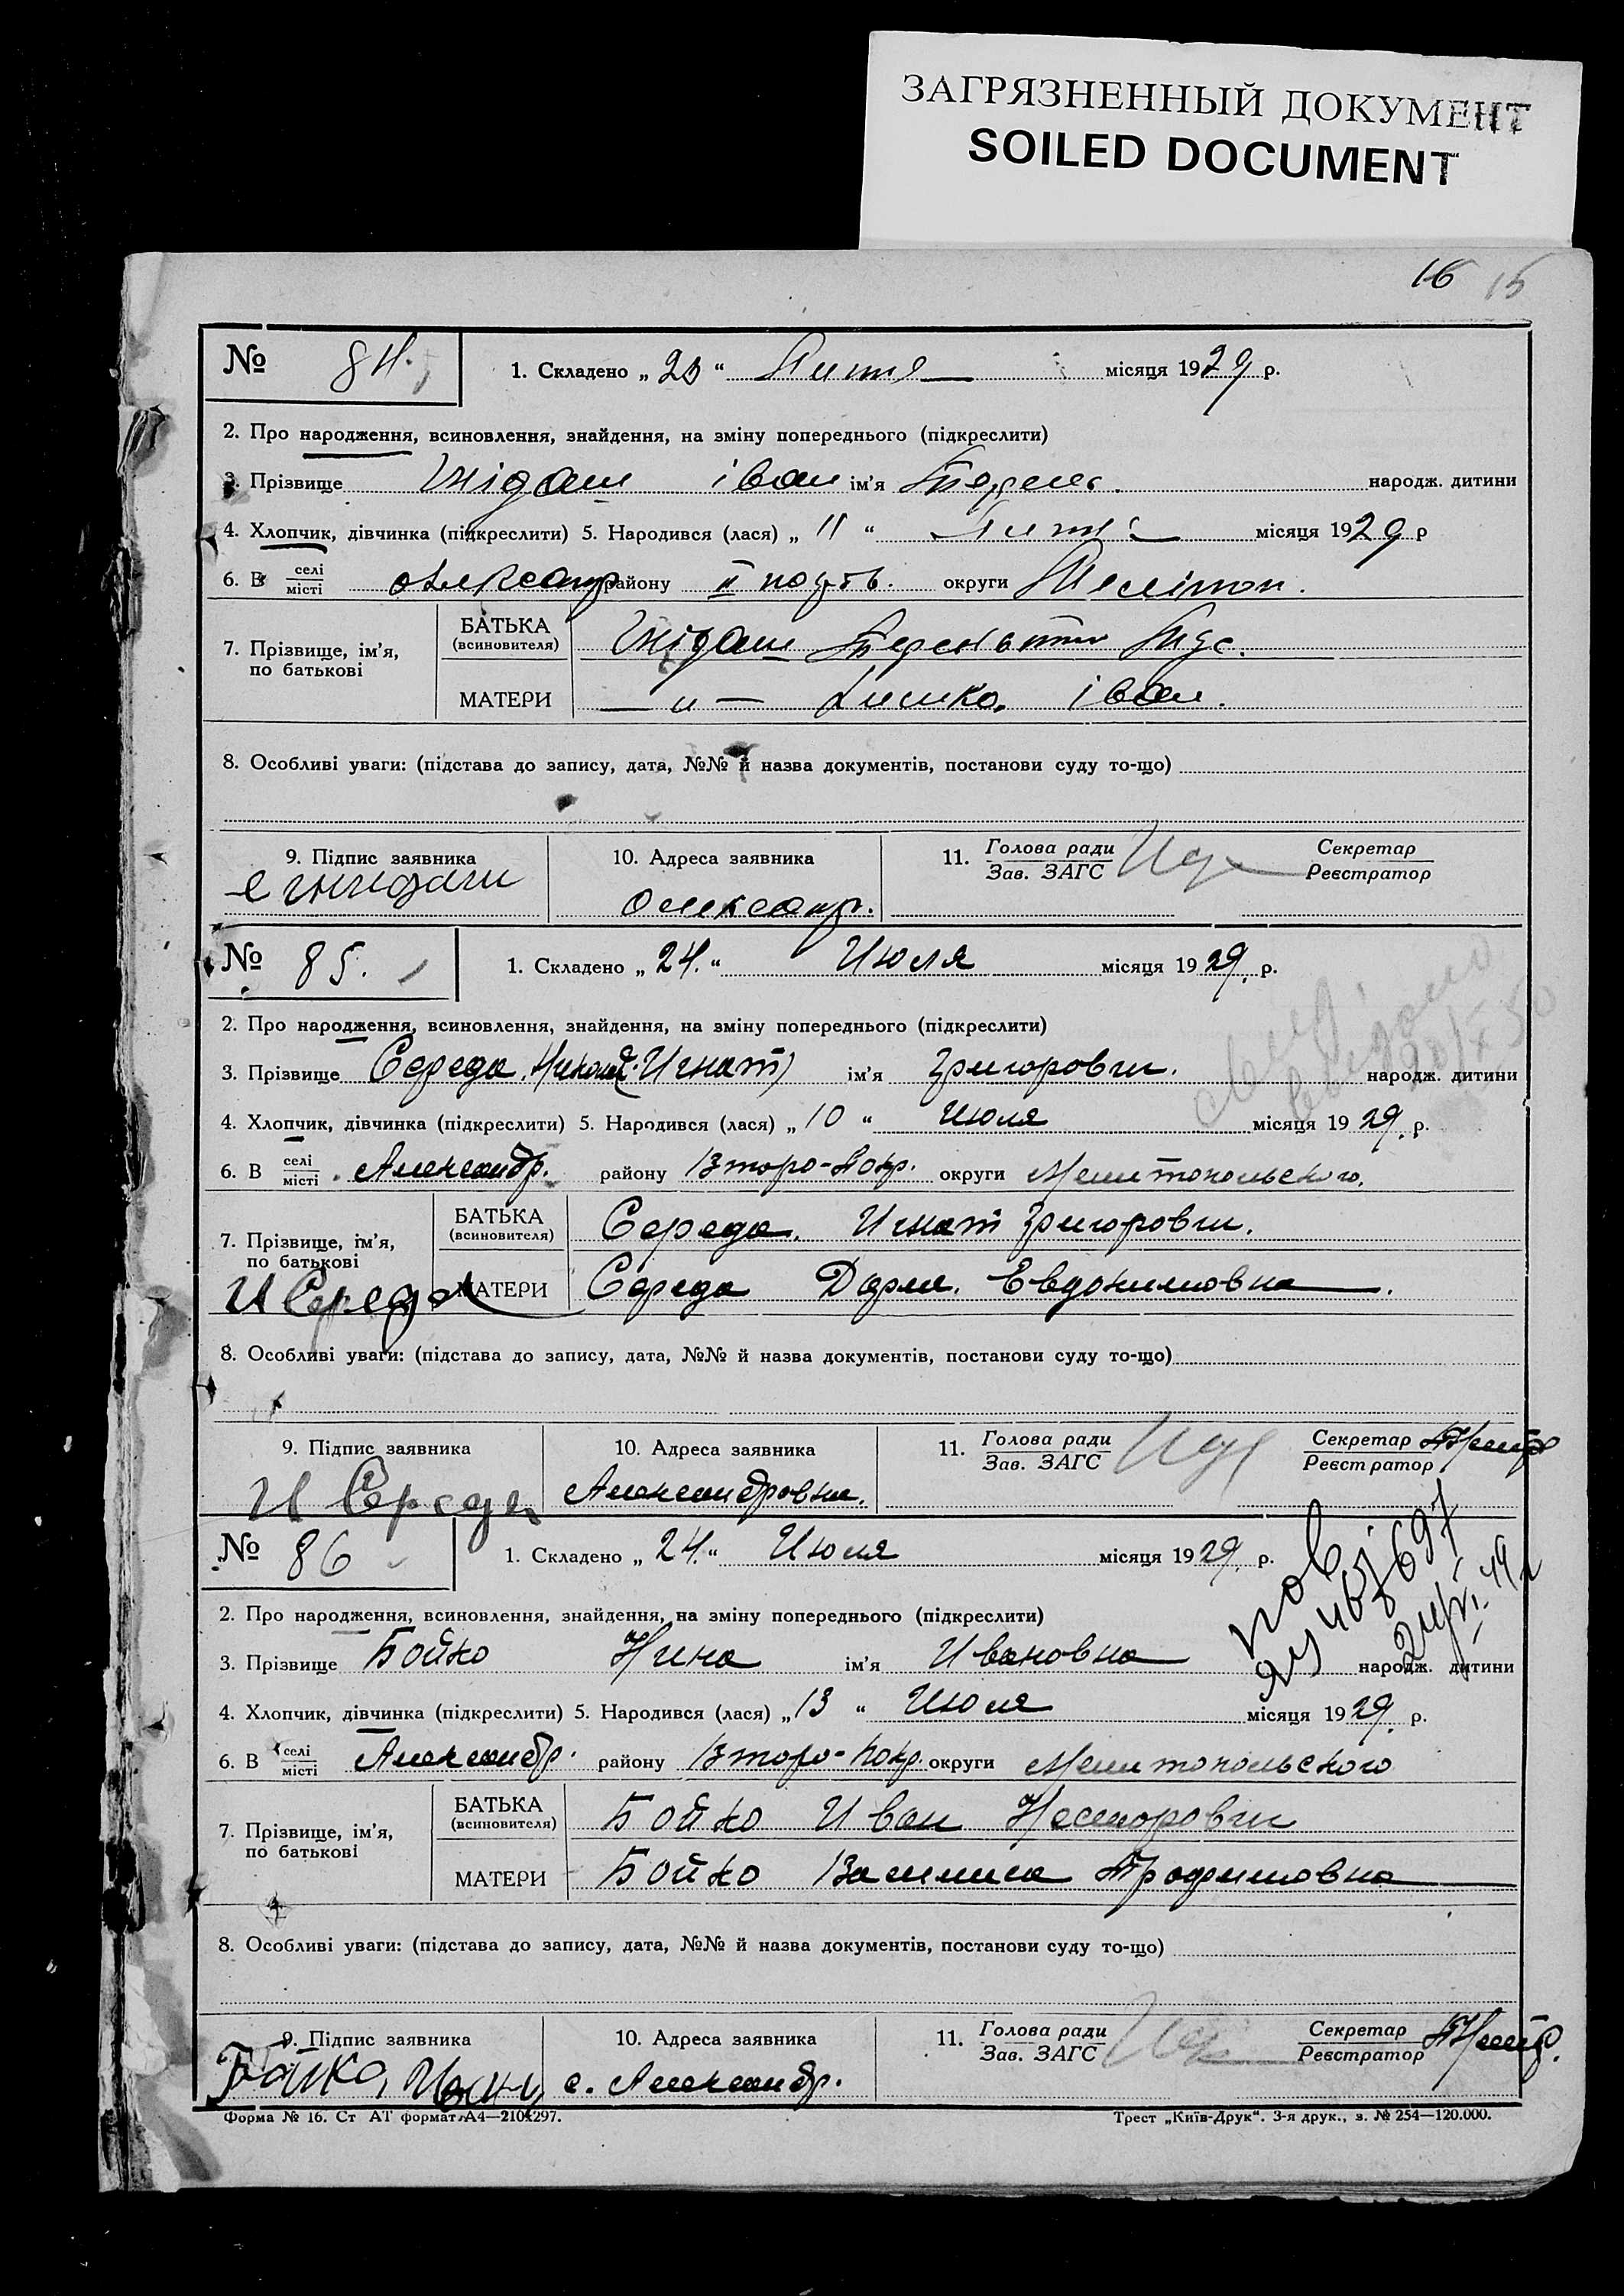 ЗАГРЯЗНЕННЫЙ ДОКУМЕНТ
SOILED DOCUMENT
16 15
№ 84. 1. Складено „ 20 “ Липня місяця 1929 р.
2. Про народження, всиновлення, знайдення, на зміну попереднього (підкреслити)
3. Прізвище Гнідаш іван ім'я народж. дитини
4. Хлопчик, дівчинка (підкреслити) 5. Народився (лася) „ 11 “ місяця 1929 р
6. В селі місті Олександр району II покр. округи Мелітоп.
7. Прізвище, ім'я, по батькові
БАТЬКА (всиновителя) Гнідаш
МАТЕРИ — „ — іван.
8. Особливі уваги: (підстава до запису, дата, №№ й назва документів, постанови суду то-що)
9. Підпис заявника 10. Адреса заявника 11. Голова ради Зав. ЗАГС Секретар Реєстратор
Олександр.
№ 85. 1. Складено „ 24. “ Июля місяця 1929. р.
2. Про народження, всиновлення, знайдення, на зміну попереднього (підкреслити)
3. Прізвище Середа. Николай Игнат) ім'я Григорович. народж. дитини
4. Хлопчик, дівчинка (підкреслити) 5. Народився (лася) „ 10 “ Июля місяця 1929. р.
6. В селі місті Александр. району Второ-Покр. округи Мелитопольского.
7. Прізвище, ім'я, по батькові
БАТЬКА (всиновителя) Середа. Игнат Григорович.
МАТЕРИ Середа Дарья. Евдокимовна.
И Середа
8. Особливі уваги: (підстава до запису, дата, №№ й назва документів, постанови суду то-що)
9. Підпис заявника 10. Адреса заявника 11. Голова ради Зав. ЗАГС Секретар Реєстратор
И Середа Александровка.
№ 86 1. Складено „ 24. “ Июля місяця 1929. р.
2. Про народження, всиновлення, знайдення, на зміну попереднього (підкреслити)
3. Прізвище Бойко Нина ім'я Ивановна народж. дитини
4. Хлопчик, дівчинка (підкреслити) 5. Народився (лася) „ 13 “ Июля місяця 1929. р.
6. В селі місті Александр. району Второ-Покр. округи Мелитопольского
7. Прізвище, ім'я, по батькові
БАТЬКА (всиновителя) Бойко Иван Несторович
МАТЕРИ Бойко Василиса Трофимовна
8. Особливі уваги: (підстава до запису, дата, №№ й назва документів, постанови суду то-що)
9. Підпис заявника 10. Адреса заявника 11. Голова ради Зав. ЗАГС Секретар Реєстратор
Бойко, Иван с. Александр.
Форма № 16. Ст АТ формат А4—210×297. Трест „Київ-Друк“. 3-я друк., з. № 254—120.000.